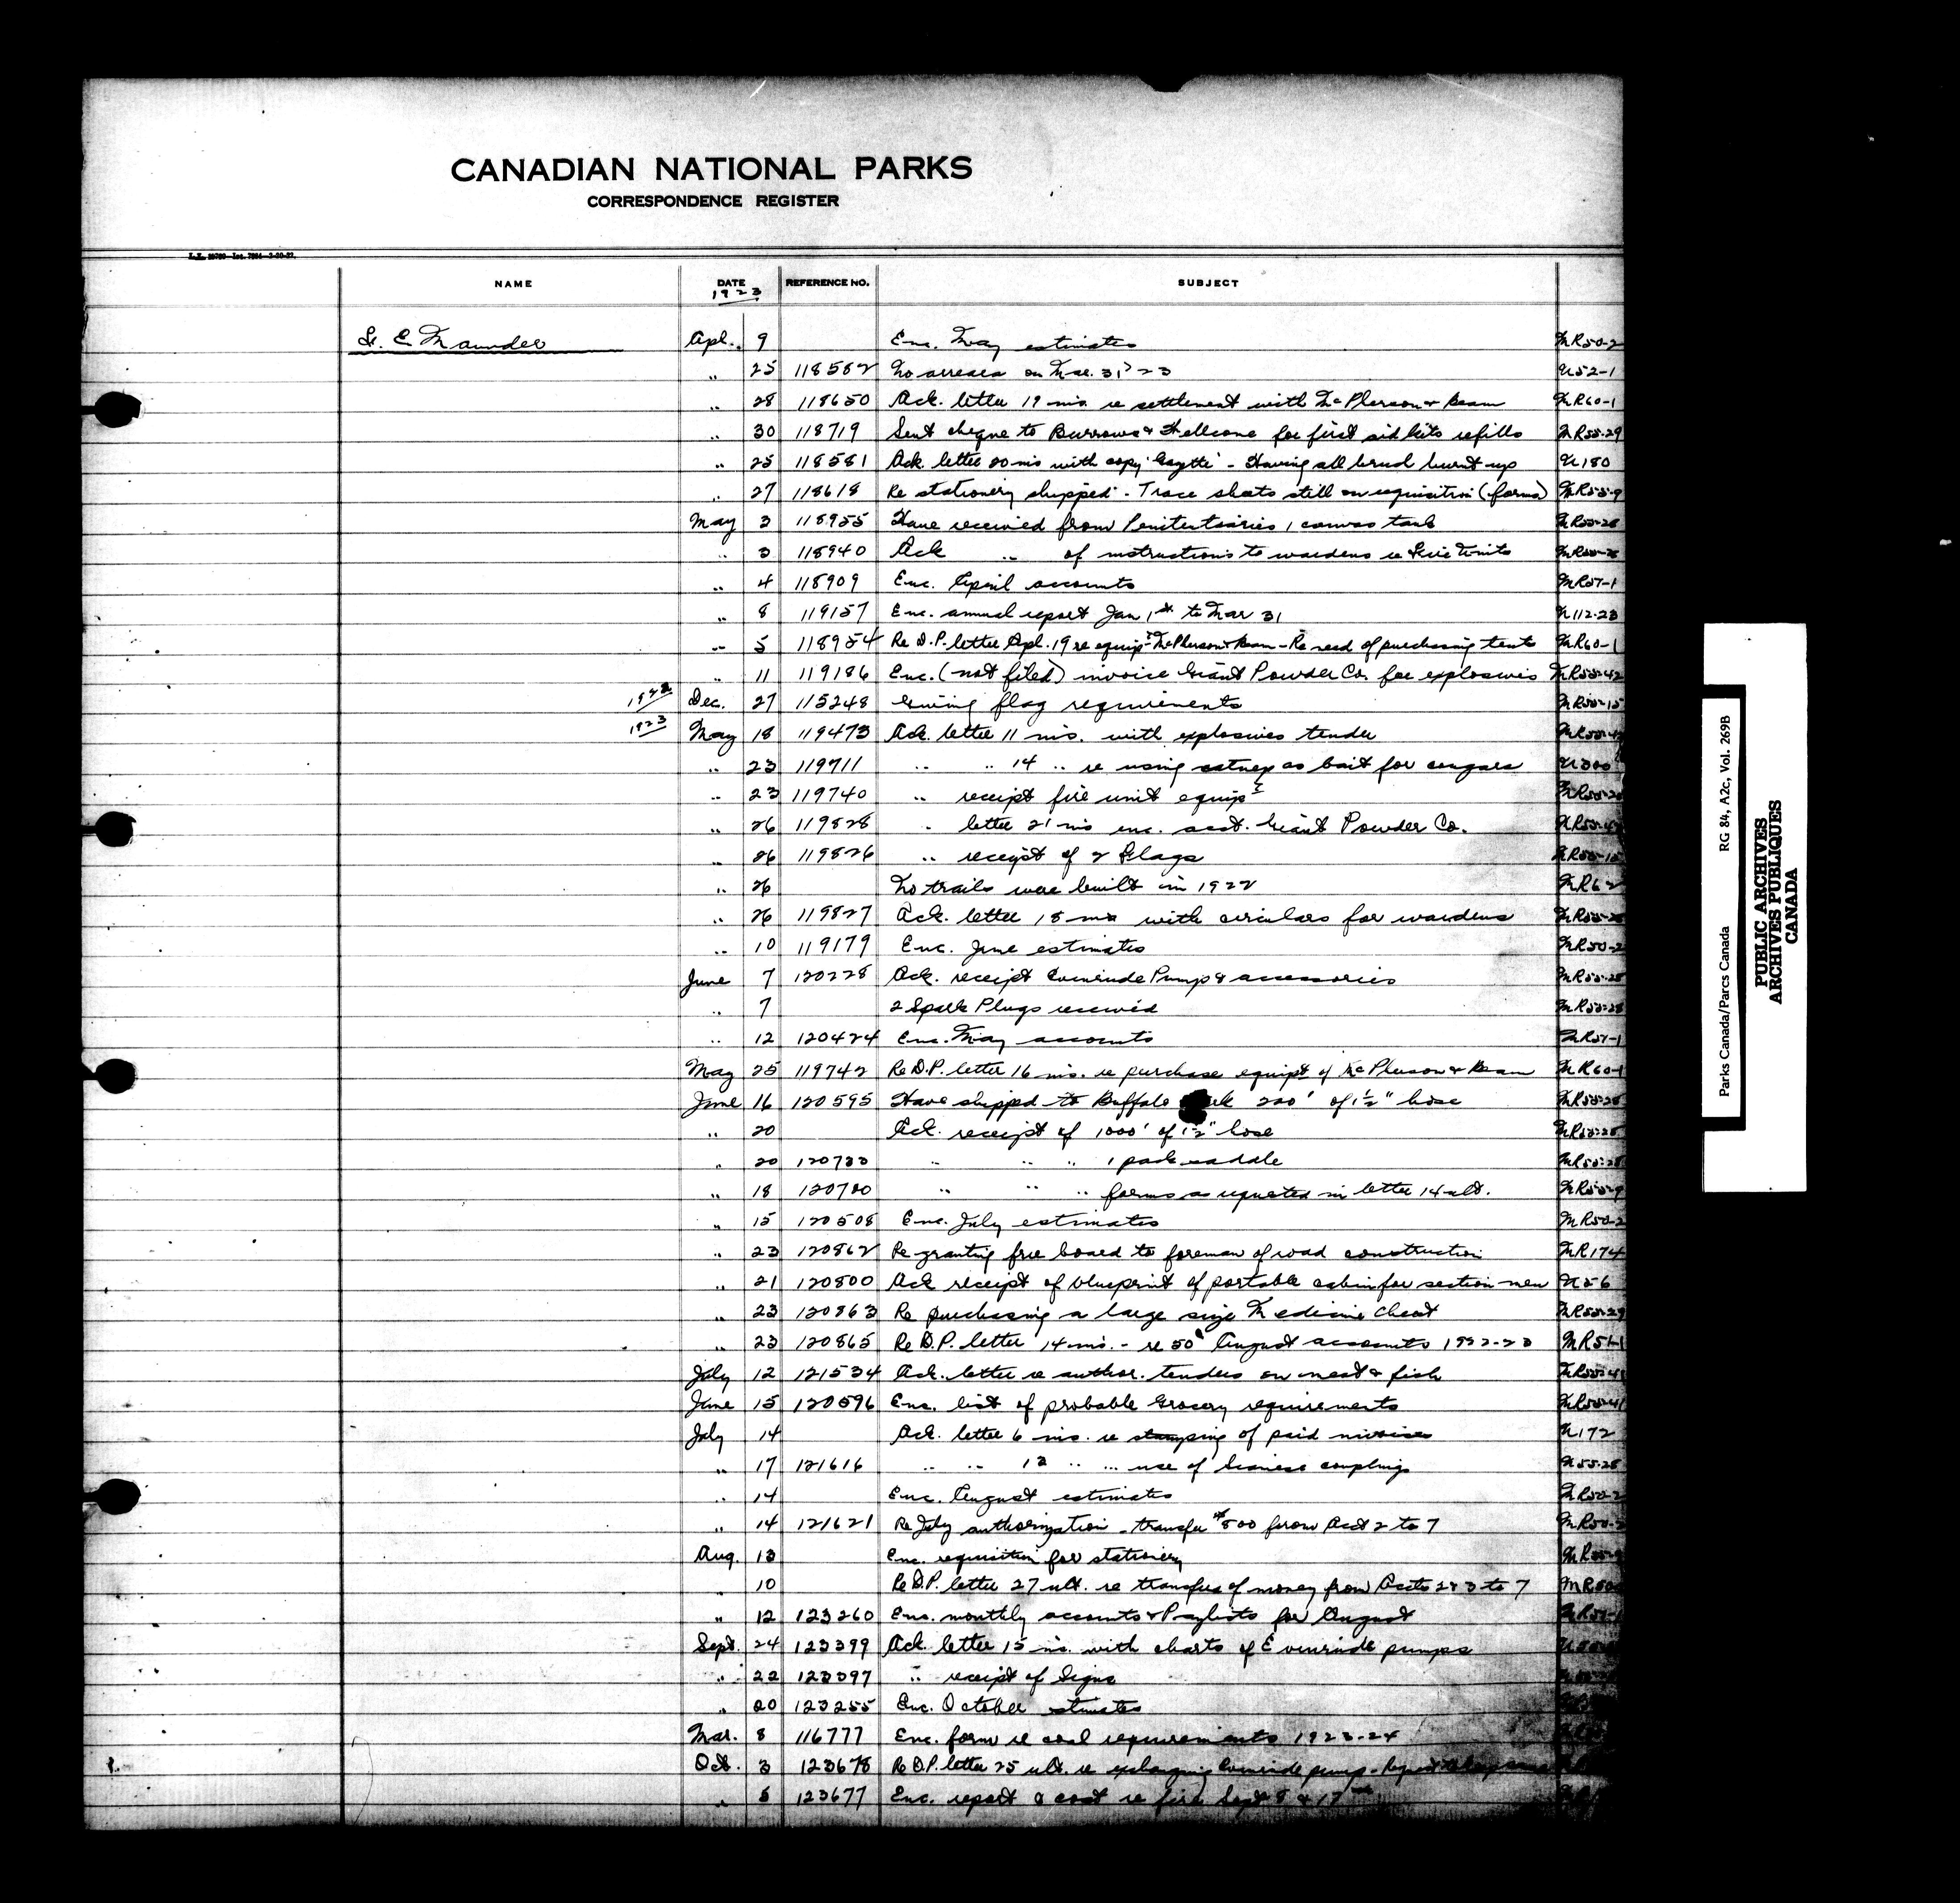 CANADIAN NATIONAL PARKS
CORRESPONDENCE REGISTER
NAME DATE REFERENCE NO. SUBJECT
1923
Apl. 9 Enc. May estimates MR50-2
" 25 118582 No arrears on Mar. 31/23 U52-1
" 28 118650 Ack. letter 19 ins. re settlement with McPherson & Beam MR60-1
" 30 118719 Sent cheque to Burrows & for first aid kits refills MR55-29
" 25 118581 Ack. letter 20 ins with copy 'Gazette' - Having all brush burnt up U180
" 27 118618 Re stationery shipped. - Trace sheets still on requisition (forms) MR55-9
May 3 118955 Have received from Penitentiaries 1 canvas tank MR55-28
" 3 118940 Ack " of instructions to wardens re Fire Units
" 4 118909 Enc. April accounts MR57-1
" 8 119157 Enc. annual report Jan 1st to Mar 31 U112-23
" 5 118954 Re D.P. letter Apl. 19 re equipt McPherson & Beam - Re need of purchasing tents MR60-1
" 11 119186 Enc. (not filed) invoice Giant Powder Co. for explosives MR55-42
1922 Dec. 27 115248 Giving flag requirements MR55-15
1923 May 18 119473 Ack. letter 11 ins. with explosives tender MR55-42
" 23 119711 " " 14 " re using catnep as bait for cougars U300
" 23 119740 " receipt fire unit equipt MR55-28
" 26 119828 " letter 21 ins enc. acct. Giant Powder Co.
" 26 119826 " receipt of 2 Flags MR55-15
" 26 No trails were built in 1922 MR62
" 26 119827 Ack. letter 18 ins with circulars for wardens
" 10 119179 Enc. June estimates MR50-2
June 7 120228 Ack. receipt Evinrude Pump & accessories MR55-28
" 7 2 Spark Plugs received MR55-28
" 12 120424 Enc. May accounts MR57-1
May 25 119742 Re D.P. letter 16 ins. re purchase equipt of McPherson & Beam MR60-1
June 16 120595 Have shipped to Buffalo 200' of 1½" hose MR55-28
" 20 Ack. receipt of 1000' of 1½" hose MR55-28
" 20 120733 " " " 1 pack saddle MR55-28
" 18 120700 " " " forms as requested in letter 14 ult. MR55-9
" 15 120508 Enc. July estimates MR50-2
" 23 120862 Re granting free board to foreman of road construction MR174
" 21 120800 Ack receipt of blueprint of portable cabin for section men U56
" 23 120863 Re purchasing a large size Medicine Chest MR55-29
" 23 120865 Re D.P. letter 14 ins. - re 50¢ August accounts 1922-23 MR51-1
July 12 121534 Ack. letter re author. tenders on meat & fish
June 15 120596 Enc. list of probable Grocery requirements MR55-41
July 14 Ack. letter 6 ins. re stamping of paid invoices U172
" 17 121616 " " 12 " " use of Siamese couplings U55-28
" 14 Enc. August estimates MR50-2
" 14 121621 Re July authorization - transfer $500 from Acct 2 to 7 MR50-2
Aug. 13 Enc. requisition for stationery
" 10 Re D.P. letter 27 ult. re transfer of money from Accts 2 & 3 to 7
" 12 123260 Enc. monthly accounts & Paylists for August MR57-1
Sept. 24 123399 Ack. letter 15 ins. with charts of Evinrude pumps
" 22 123397 " receipt of Signs
" 20 123255 Enc. October estimates
Mar. 8 116777 Enc. form re coal requirements 1923-24
Oct. 3 123678 Re D.P. letter 25 ult. re exchanging Evinrude pump
" 5 123677 Enc. report & cost re fire Sept 8 & 17
Parks Canada/Parcs Canada RG 84, A2c, Vol. 269B
PUBLIC ARCHIVES
ARCHIVES PUBLIQUES
CANADA